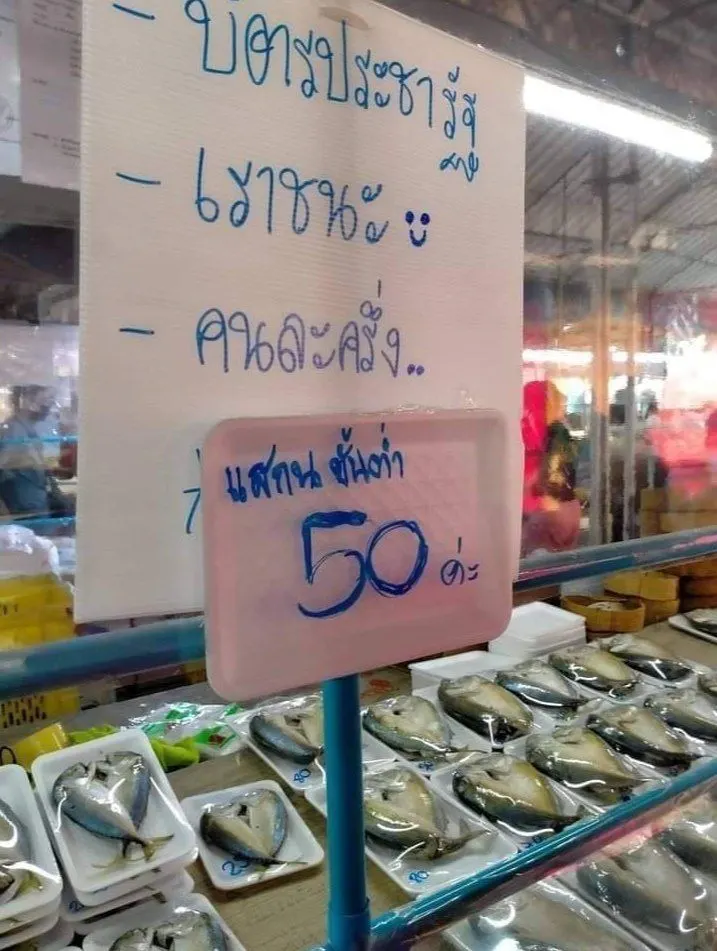 - บัตรประชารัฐ
- เราชนะ
- คนละครึ่ง..
แสกน ขั้นต่ำ
50 ค่ะ
80
80